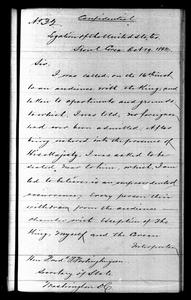 Confidential
Legation of the United States
Seoul Corea Oct 19. 188
Sir.
I was called, on the 16th inst, to
an audience with the King, and
taken to apartments and grounds
to which, I was told, no foreigner
had ever been admitted. After
being ushered into the presence of
His Majesty, I was asked to be
seated next to him, which, I am
led to believe, is an unprecedented
occurrence, every person then
withdrew from the audience
chamber with exception of the
King, myself and the Corean
Interpreter
Hon
Secretary of State
Washington D.C.